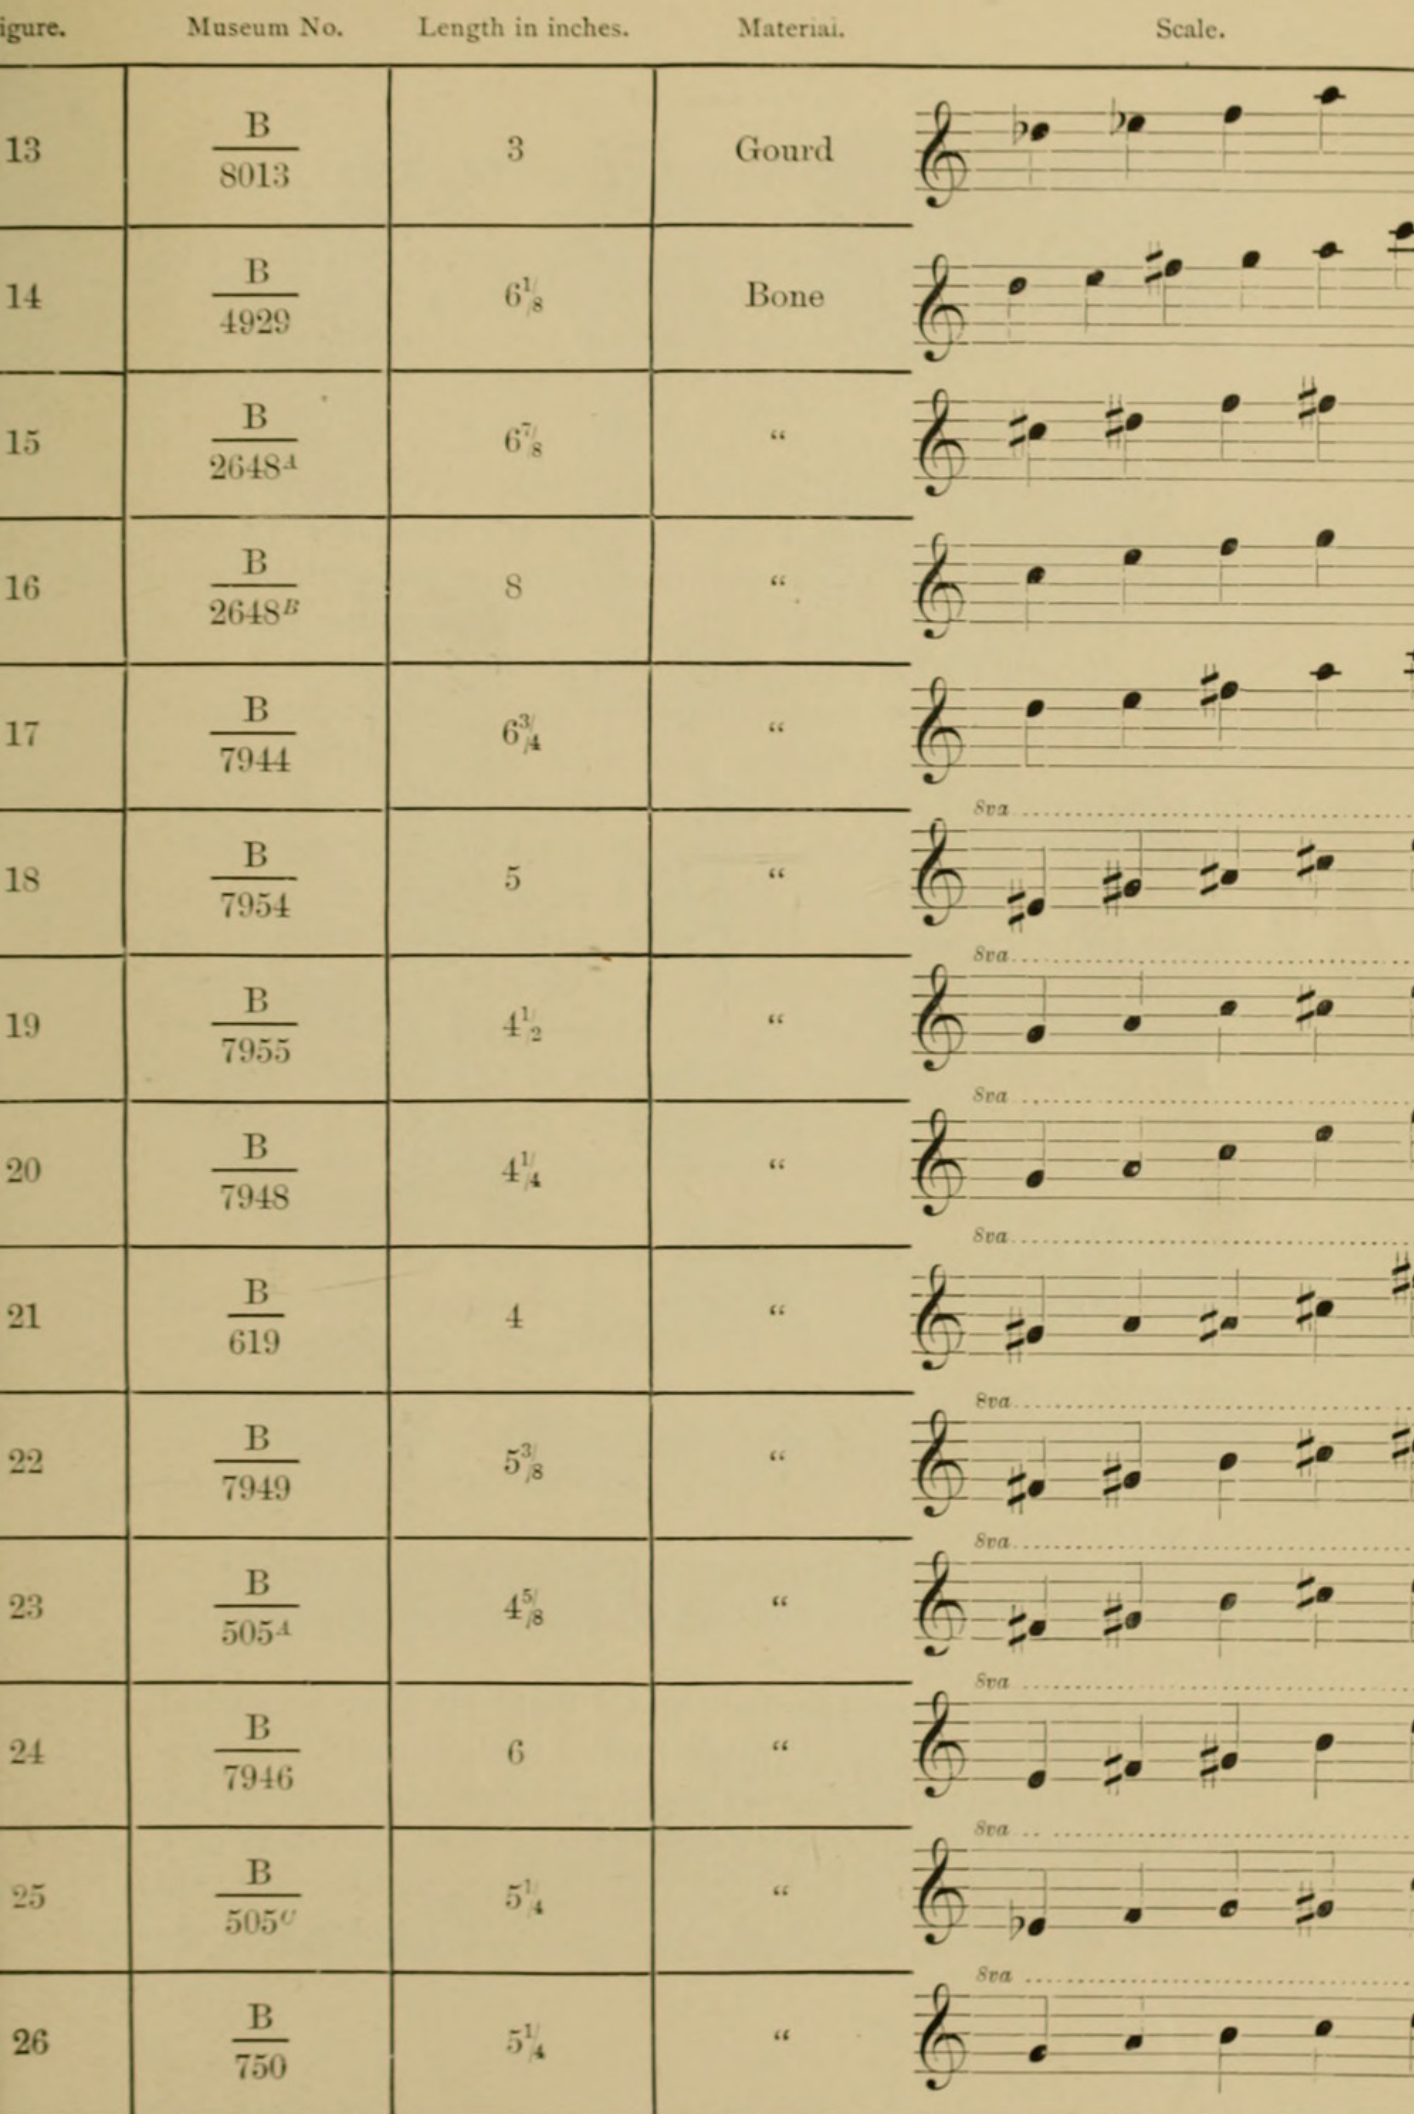 igure. Museum No. Length in inches. Material. Scale.
13 B/8013 3 Gourd
14 B/4929 6 1/8 Bone
15 B/2648A 6 7/8 “
16 B/2648B 8 “
17 B/7944 6 3/4 “
8va
18 B/7954 5 “
8va
19 B/7955 4 1/2 “
8va
20 B/7948 4 1/4 “
8va
21 B/619 4 “
8va
22 B/7949 5 3/8 “
8va
23 B/505A 4 5/8 “
8va
24 B/7946 6 “
8va
25 B/505C 5 1/4 “
8va
26 B/750 5 1/4 “